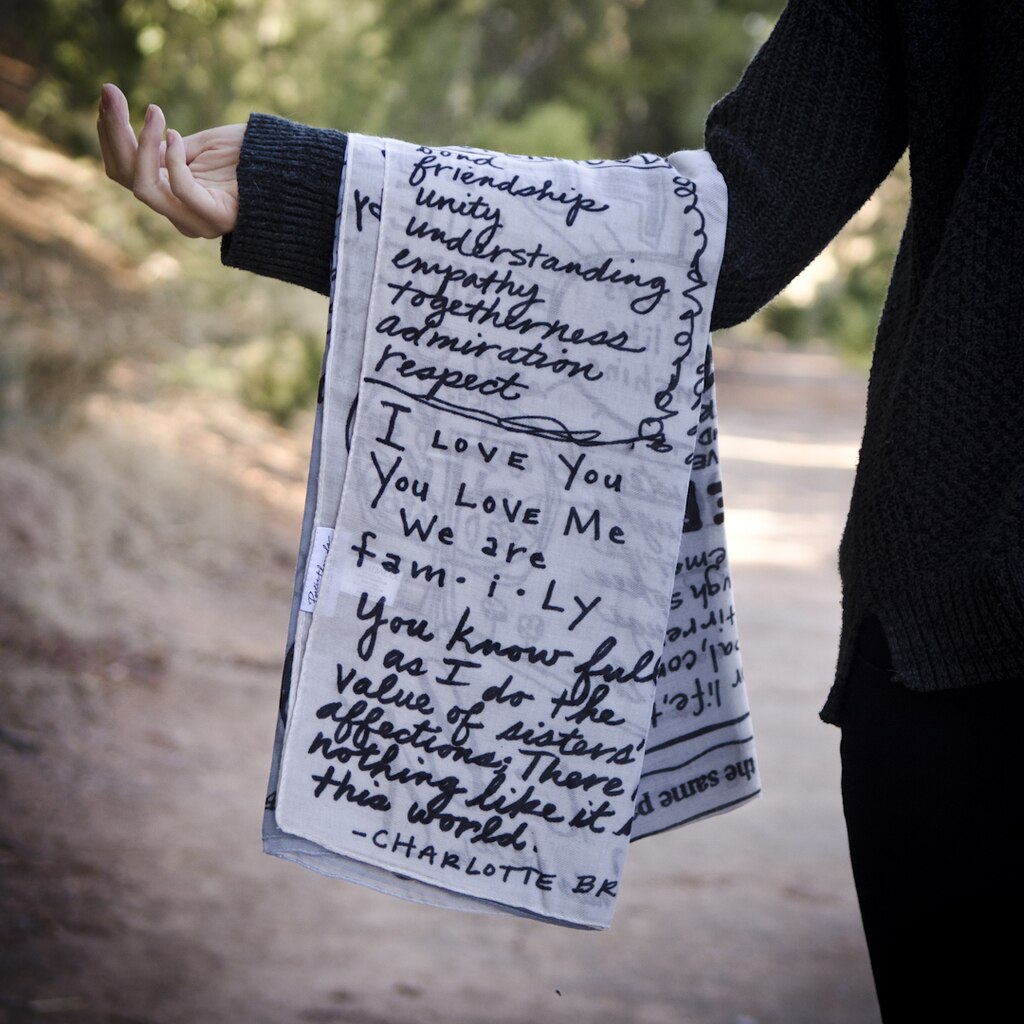 bond
friendship
unity
understanding
empathy
togetherness
admiration
respect
I LOVE You
You LOVE Me
We are
fam·i·Ly
You know full
as I do the
value of sisters'
affections; There
nothing like it
this world.
-CHARLOTTE BR
life,
the same p